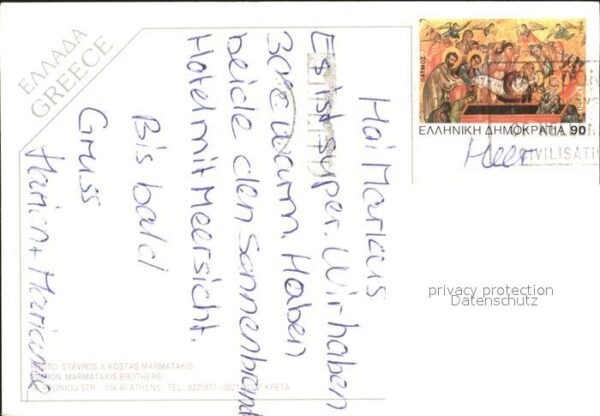 ΕΛΛΑΔΑ
GREECE
Hai Marcus
Es ist super. Wir haben
30°C warm. Haben
beide den Sonnenbrand
Hotel mit Meersicht.
Bis bald
Gruss
Marion + Marianne
ΠΑΤΜΟΣ
ΕΛΛΗΝΙΚΗ ΔΗΜΟΚΡΑΤΙΑ 90
CIVILISATI
Herr
privacy protection
Datenschutz
PHOTO: STAVROS & KOSTAS MARMATAKIS
MARMATAKIS BROTHERS
STR. - 104 40 ATHENS - TEL.: 8225977 - KRETA